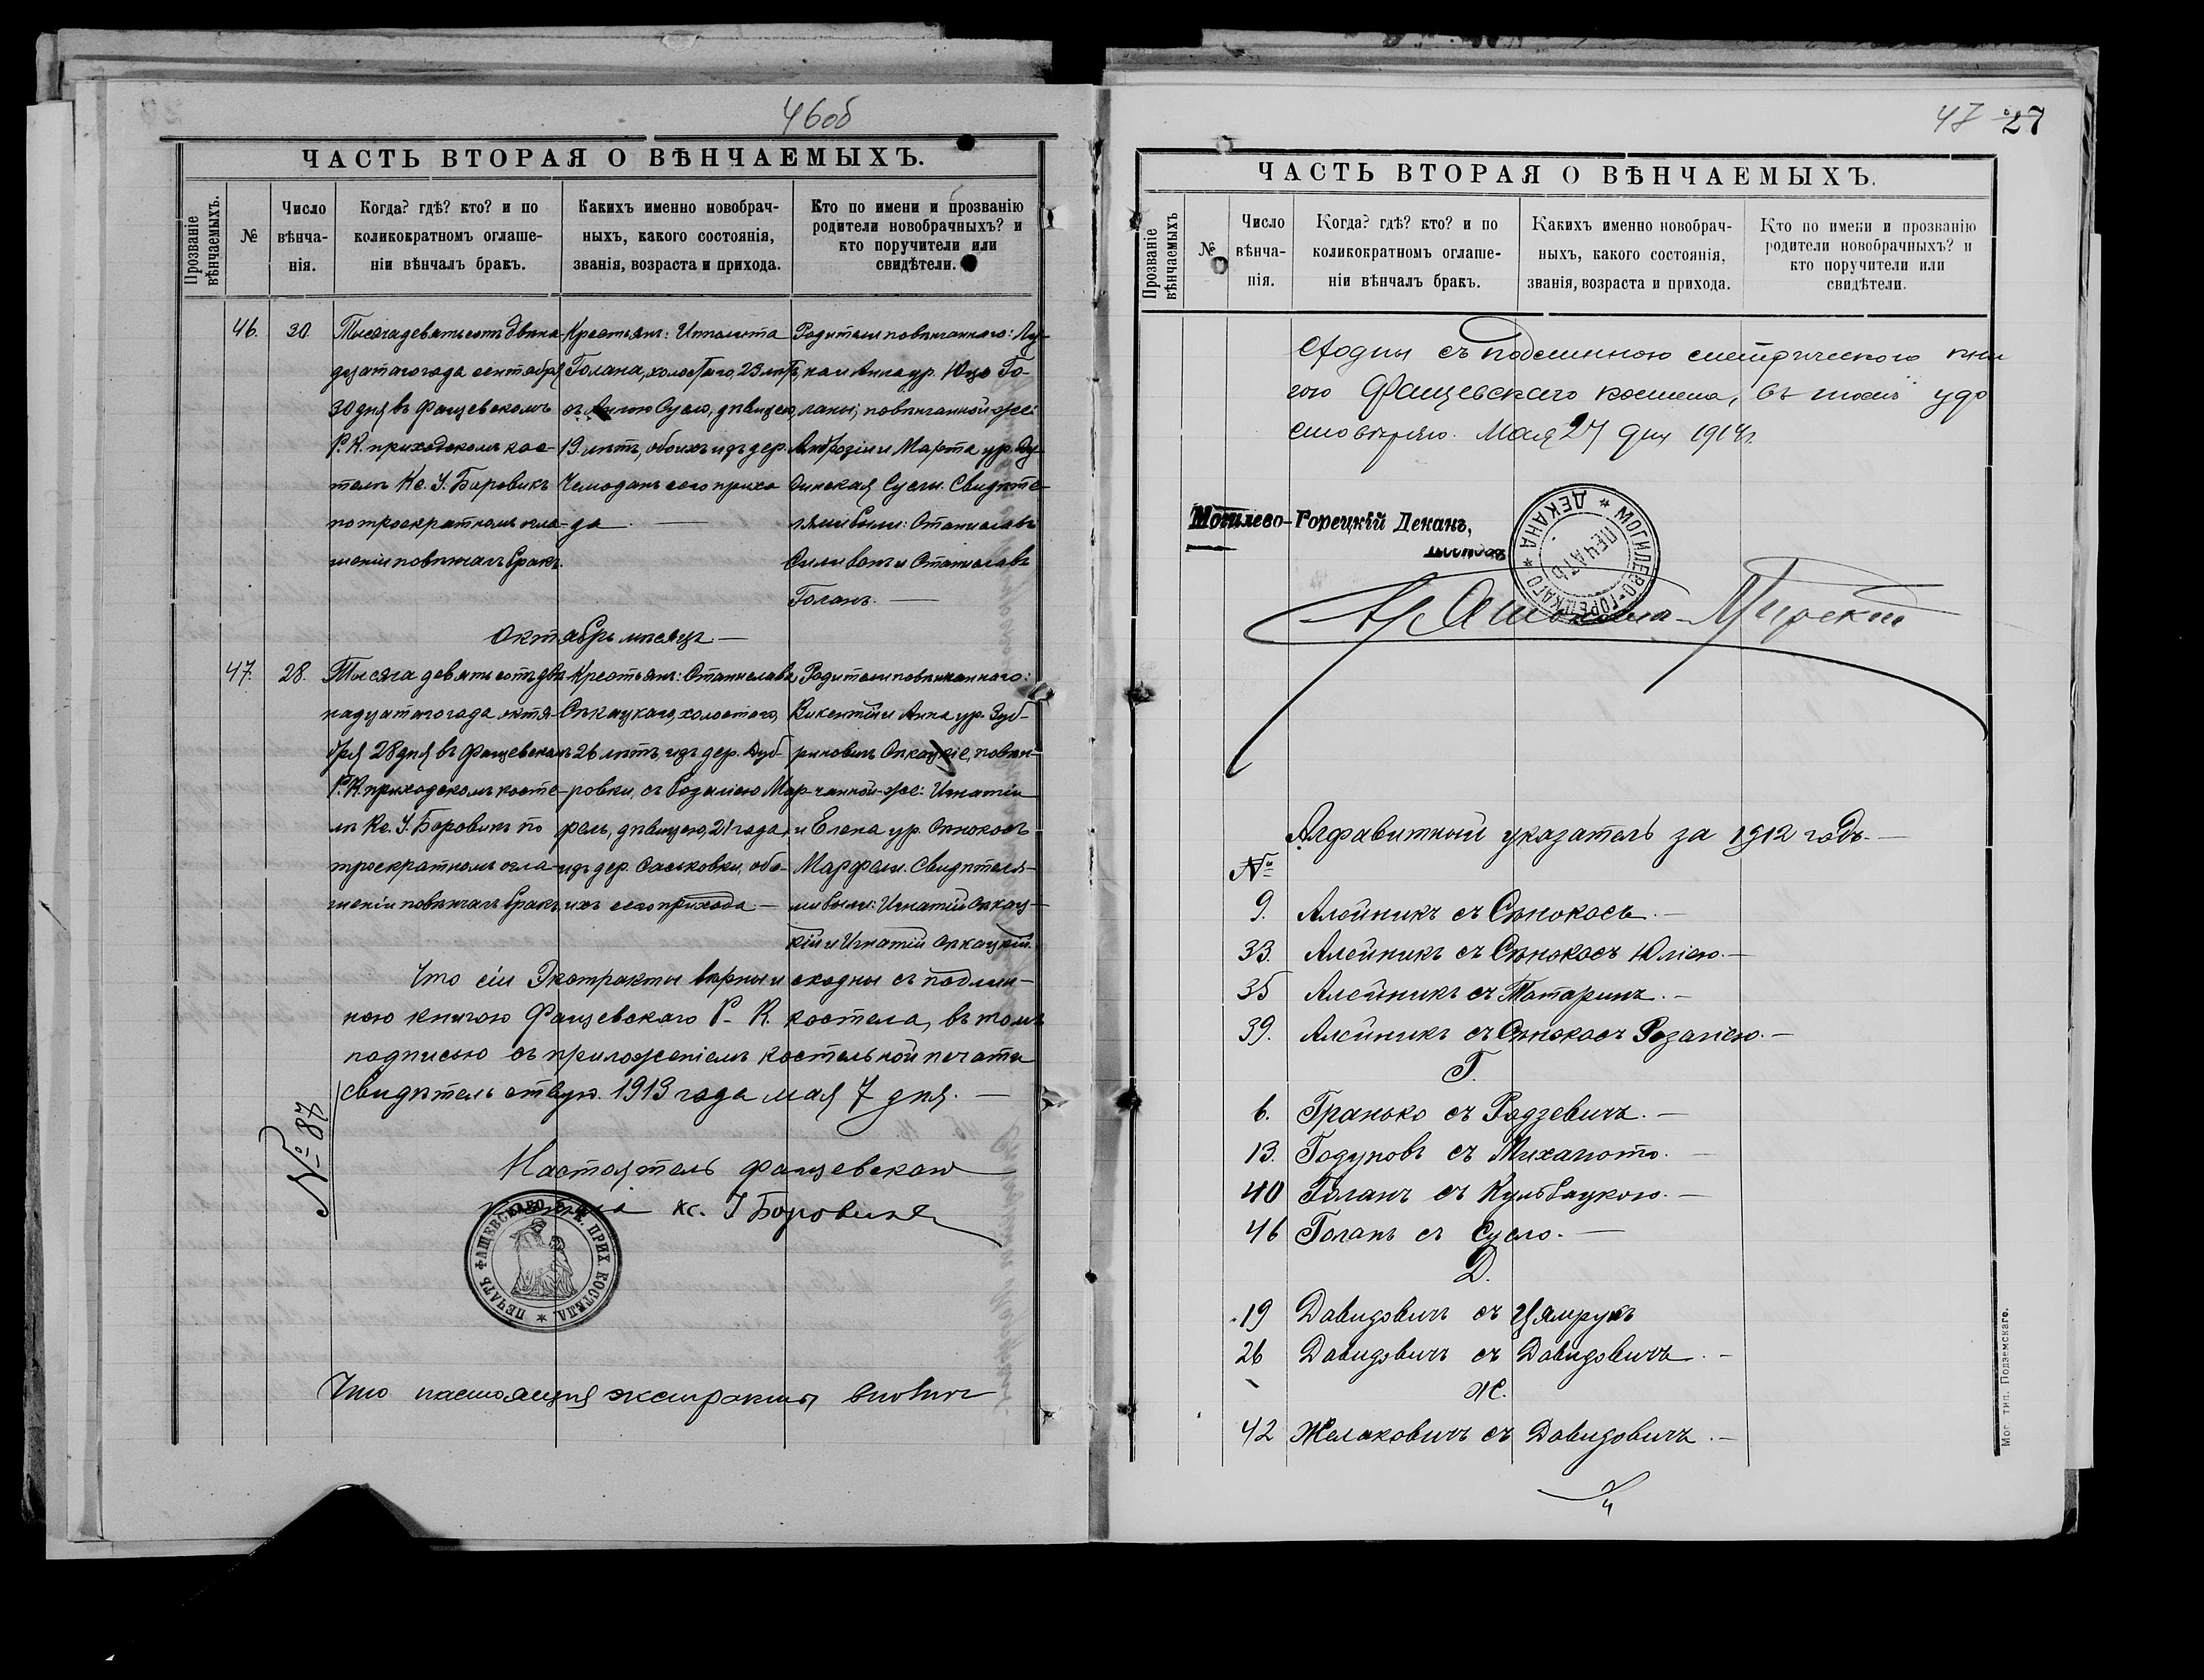 46об
ЧАСТЬ ВТОРАЯ О ВѢНЧАЕМЫХЪ.
Прозваніе вѣнчаемыхъ.
№
Число вѣнча-
нія.
Когда? гдѣ? кто? и по
коликократномъ оглаше-
ніи вѣнчалъ бракъ.
Какихъ именно новобрач-
ныхъ, какого состоянія,
званія, возраста и прихода.
Кто по имени и прозванію
родители новобрачныхъ? и
кто поручители или
свидѣтели.
46.
30.
Тысяча девятьсотъ двѣна-
дцатаго года сентября
30 дня въ Фащевскомъ
Р. К. приходскомъ кос-
телѣ Кс. І. Боровикъ
по троекратномъ огла-
шеніи повѣнчалъ бракъ.
Крестьянъ: Ипполита
Голана, холостаго, 23 лѣтъ,
съ Анною Сусло, дѣвицею,
19 лѣтъ, обоихъ изъ дер.
Чемоданъ сего прихо
да.
Родители повѣнчаннаго: Лу-
ка и Анна ур. Юцо Го-
ланы, повѣнчанной-же:
Амброзій и Марта ур.
Суслы. Свидѣте-
лями были: Станиславъ
Селивонъ и Станиславъ
Голанъ.
Октябрь мѣсяцъ.
47.
28.
Тысяча девятьсотъ двѣ
надцатаго года октя-
бря 28 дня въ Фащевскомъ
Р. К. приходскомъ косте-
лѣ Кс. І. Боровикъ по
троекратномъ огла-
шеніи повѣнчалъ бракъ.
Крестьянъ: Станислава
Опкацкаго, холостаго,
26 лѣтъ, изъ дер. Дуб-
ровки, съ Розаліею Мар-
фель, дѣвицею, 21 года
изъ дер. Саськовки, обо-
ихъ сего прихода.
Родители повѣнчаннаго:
Викентій и Анна ур. Зуб-
риновичъ Опкацкіе, повѣн-
чанной-же: Игнатій
и Елена ур. Сѣнокосъ
Марфели. Свидѣтеля-
ми были: Игнатій Опкац-
кій и Игнатій Опкацкій.
Что сіи Экстракты вѣрны и сходны съ подлин-
ною книгою Фащевскаго Р. К. костела, въ томъ
подписью съ приложеніемъ костельной печати
свидѣтельствую. 1913 года мая 7 дня.
№ 87
Настоятель Фащевскаго
кс. І Боровикъ
ПЕЧАТЬ ФАЩЕВСКАГО Р. К. ПРИХ. КОСТЕЛА
Что настоящія экстракты
47 27
ЧАСТЬ ВТОРАЯ О ВѢНЧАЕМЫХЪ.
Прозваніе вѣнчаемыхъ
№
Число вѣнча-
нія.
Когда? гдѣ? кто? и по
коликократномъ оглаше-
ніи вѣнчалъ бракъ.
Какихъ именно новобрач-
ныхъ, какого состоянія,
званія, возраста и прихода.
Кто по имени и прозванію
родители новобрачныхъ? и
кто поручители или
свидѣтели.
сходны съ подлинною метрическою кни
гою Фащевскаго костела, въ томъ удо
стовѣряю. Мая 27 дня 1914г.
Могилево-Горецкій Деканъ,
ПЕЧАТЬ МОГИЛЕВО-ГОРЕЦКАГО ДЕКАНА
Мирскій
Алфавитный указатель за 1912 годъ.
№
9. Алейникъ съ Сѣнокосъ.
33. Алейникъ съ Сѣнокосъ Юліею.
35 Алейникъ съ Татаринъ.
39. Алейникъ съ Сѣнокосъ Розаліею.
Г.
6. Гранько съ Родзевичъ.
13. Годуновъ съ Михалюто.
40 Голанъ съ Кульбацкою.
46 Голанъ съ Сусло.
Д.
19 Давидовичъ съ Цямрукъ
26 Давидовичъ съ Давидовичъ
Ж.
42 Желаковичъ съ Давидовичъ.
Мог. тип. Подземскаго.